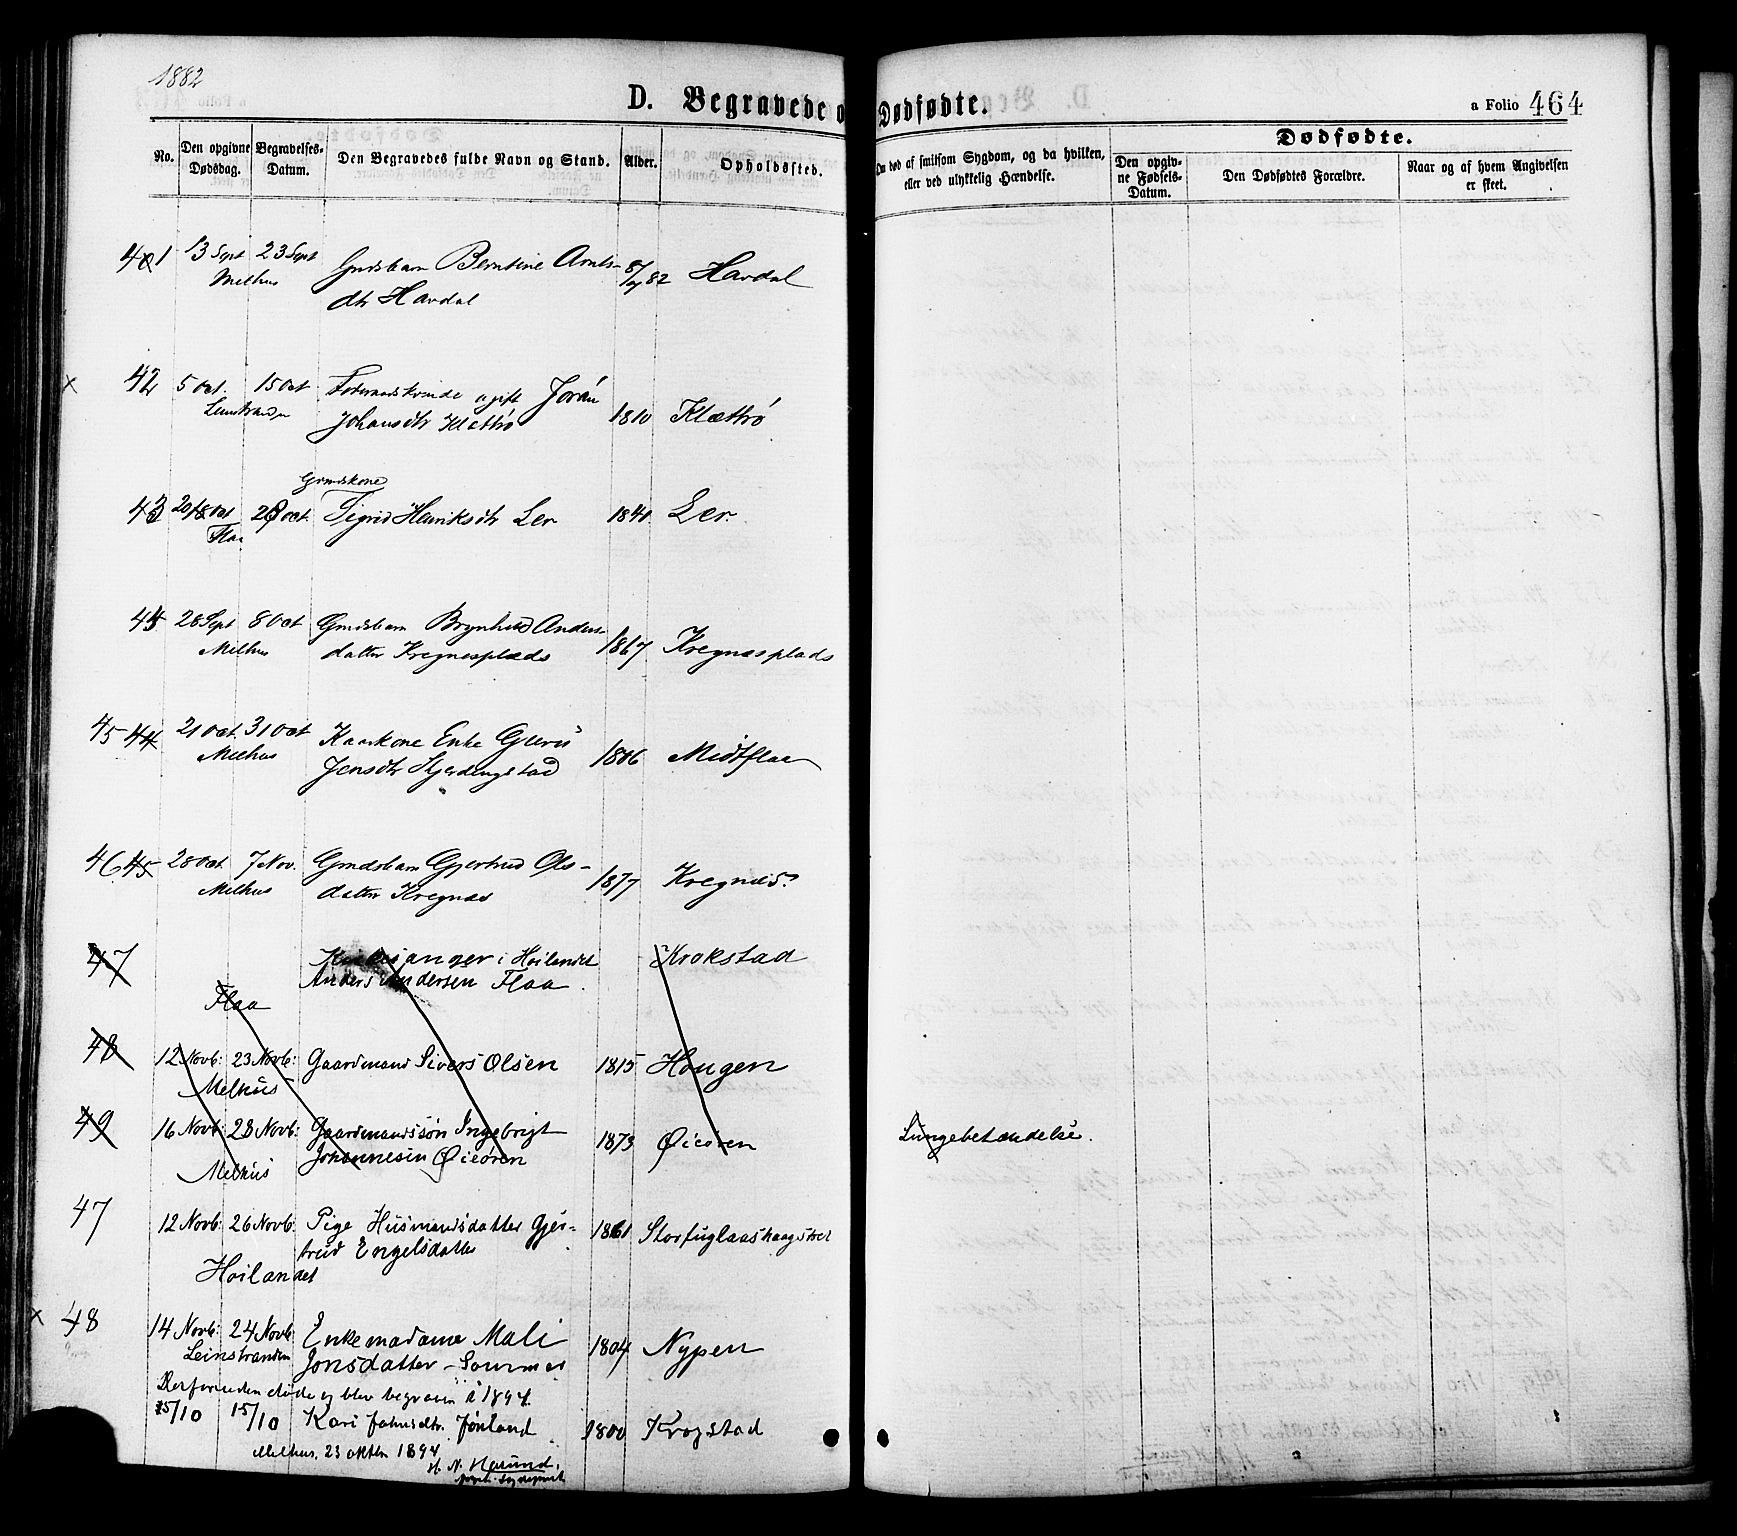 1882
D. Begravede o
Dødfødte.
a Folio 464
No.
Den opgivne Dødsdag.
Begravelses-Datum.
Den Begravedes fulde Navn og Stand.
Alder.
Opholdssted.
Om død af smitsom Sygdom, og da hvilken, eller ved ulykkelig Hændelse.
Dødfødte.
Den opgivne Fødsels-Datum.
Den Dødfødtes Forældre.
Naar og af hvem Angivelsen er skeet.
41 13 Sept 23 Sept Gmdsbarn Berntine Arnts- 82 Havdal
Melhus dtr Havdal
x 42 5 Oct. 15 Oct ugift Jorun
Leinstranden Johansdtr Klættrø 1810 Klættrø
Grmdskone
43 Oct Oct. Sigrid Henriksdtr Ler 1841. Ler.
Flaa
44 28 Sept 8 Oct Gmdsbarn Brynhild Anders-
Melhus datter Kregnesplads 1867 Kregnæsplads
45 44 21 Oct. 31 Oct Kaarkone Enke
Melhus Jensdtr 1806 Midtflaa
46 45 28 Oct. 7 Nov. Gmdsbarn Gjertrud Ols-
Melhus datter Kregnæs 1877 Kregnæs.
47 i Hølandet Krokstad
Anders Andersen Flaa
Flaa
48 12 Novb: 23 Novb: Gaardmand Sivers Olsen 1815 Hougen
Melhus
49 16 Novb: 23 Novb: Gaardmandssøn Ingebrigt 1873 Øieøren Lungebetændelse.
Melhus Johannesen Øieøren
47 12 Novb: 26 Novb: Pige Husmandsdatter Gjer-
trud Engelsdatter 1861 Storfuglaashaagstræ
Høilandet
x 48 14 Novb: 24 Novb: Enkemadame Mali
Leinstranden Jonsdatter - Sommer 1804 Nypen
Desforuden døde og blev begraven i 1894.
15/10 Kari Johnsdtr. 1800 Krogstad
Melhus, 23 oktbr 1894